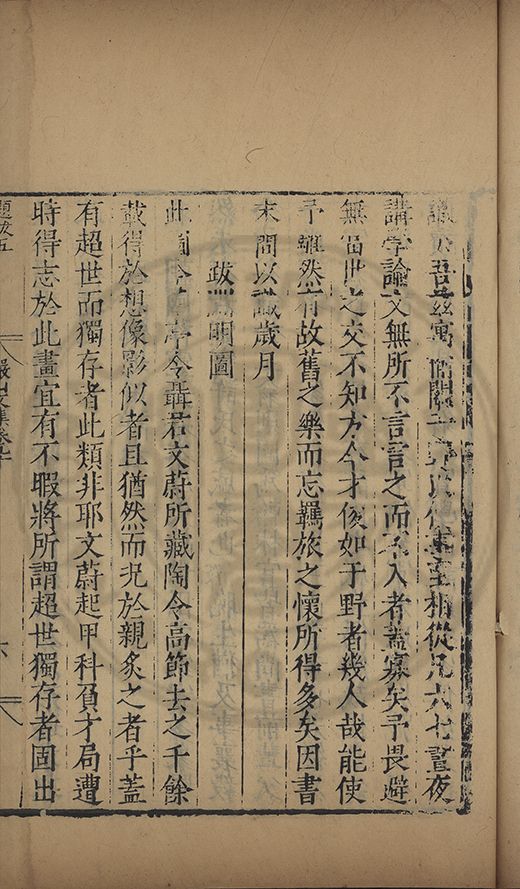 吾茲寓僧閣于野
相從凡六七晝夜
講學論文無所不言言之而不入者蓋寡矣予畏避
無當世之交不知方今才俊如于野者幾人哉能使
予雖然有故舊之樂而忘羈旅之懷所得多矣因書
末間以識歲月
跋淵明圖
此圖今華亭令聶君文蔚所藏陶令高節去之千餘
載得於想像影似者且猶然而况於親炙之者乎蓋
有超世而獨存者此類非耶文蔚起甲科負才局遭
時得志於此畫宜有不暇將所謂超世獨存者固出
題跋五
儼山文集卷九十
六